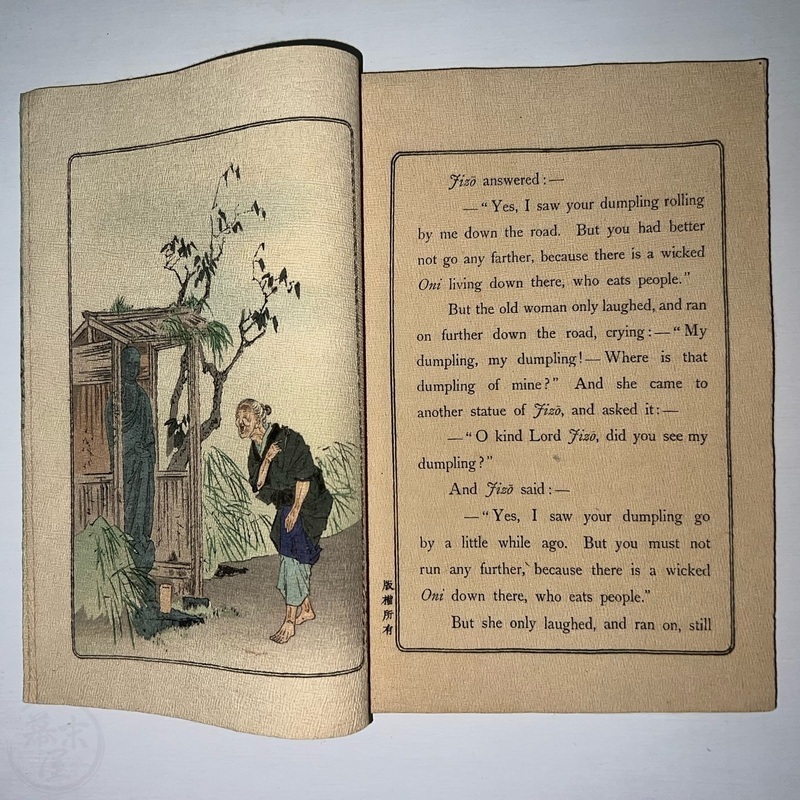 Jizō answered:—
—"Yes, I saw your dumpling rolling
by me down the road. But you had better
not go any farther, because there is a wicked
Oni living down there, who eats people."
But the old woman only laughed, and ran
on further down the road, crying:—"My
dumpling, my dumpling!—Where is that
dumpling of mine?" And she came to
another statue of Jizō, and asked it:—
—"O kind Lord Jizō, did you see my
dumpling?"
And Jizō said:—
—"Yes, I saw your dumpling go
by a little while ago. But you must not
run any further, because there is a wicked
Oni down there, who eats people."
But she only laughed, and ran on, still
版權所有